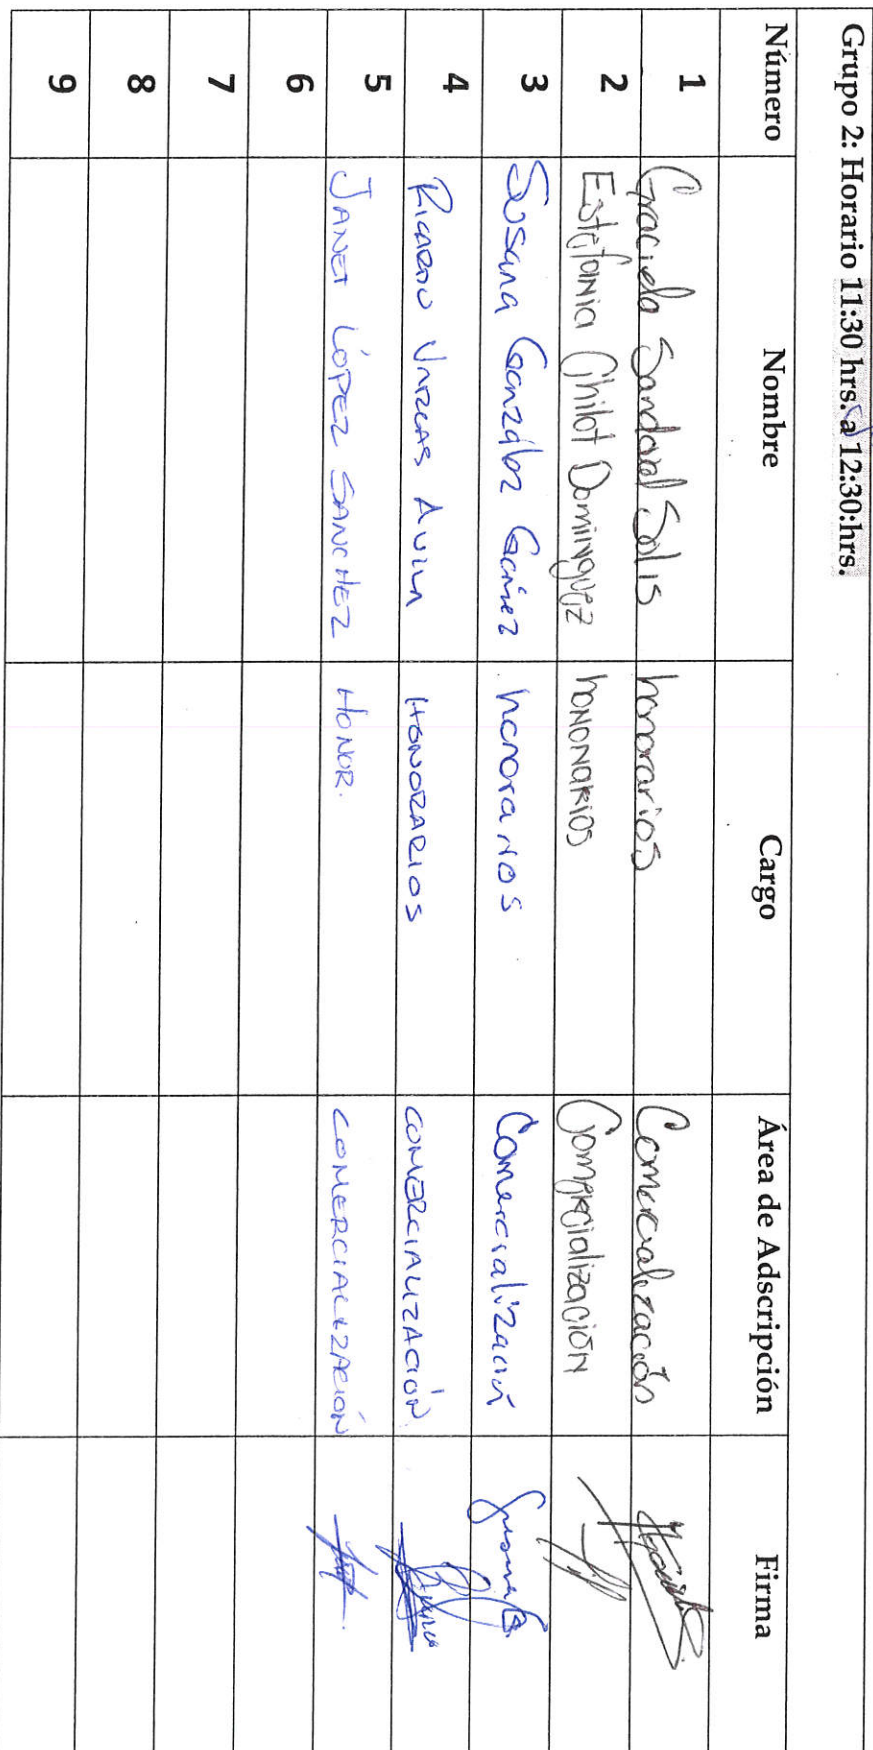 Grupo 2: Horario 11:30 hrs. a 12:30:hrs.
Número Nombre Cargo Área de Adscripción Firma
1 Graciela Sandoval Solis honorarios Comercialización
2 Estefania Chilot Dominguez honorarios Comercialización
3 Susana González Gamez honorarios Comercialización Susana G.
4 RICARDO VARGAS AVILA HONORARIOS COMERCIALIZACIÓN.
5 JANET LÓPEZ SANCHEZ HONOR. COMERCIALIZACIÓN
6
7
8
9